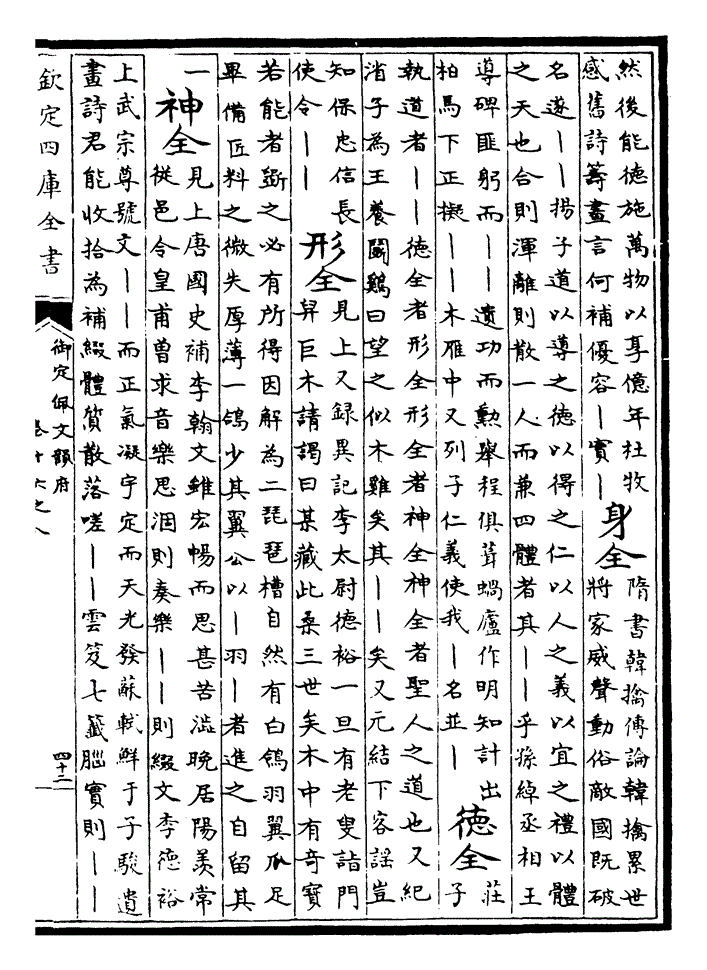 然後能德施萬物以享億年杜牧
感舊詩籌畫言何補優容｜實｜
身全
隋書韓擒傳論韓擒累世
將家威聲動俗敵國既破
名遂｜｜揚子道以導之德以得之仁以人之義以宜之禮以體
之天也合則渾離則散一人而兼四體者其｜｜乎孫綽丞相王
導碑匪躬而｜｜遺功而勲舉程俱葺蝸廬作明知計出
柏馬下正擬｜｜木雁中又列子仁義使我｜名並｜
德全
莊
子
執道者｜｜德全者形全形全者神全神全者聖人之道也又紀
渻子為王養鬭鷄曰望之似木雞矣其｜｜矣又元結下客謡豈
知保忠信長
使令｜｜
形全
見上又録異記李太尉德裕一旦有老叟詣門
舁巨木請謁曰某藏此桑三世矣木中有竒寳
若能者斵之必有所得因解為二琵琶槽自然有白鴿羽翼爪足
畢備匠料之微失厚薄一鴿少其翼公以｜羽｜者進之自留其
一
神全
見上唐國史補李翰文雖宏暢而思甚苦澁晚居陽羨常
從邑令皇甫曾求音樂思涸則奏樂｜｜則綴文李德裕
上武宗尊號文｜｜而正氣凝宇定而天光發蘇軾鮮于子駿遺
畫詩君能收拾為補綴體質散落嗟｜｜雲笈七籤腦實則｜｜
欽定四庫全書
御定佩文韻府
卷十六之八
四十二